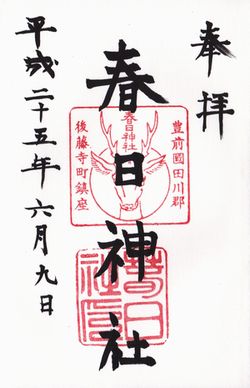 奉拝
豊前國田川郡
春日神社
春日神社
後藤寺町鎮座
春日社印
平成二十五年六月九日